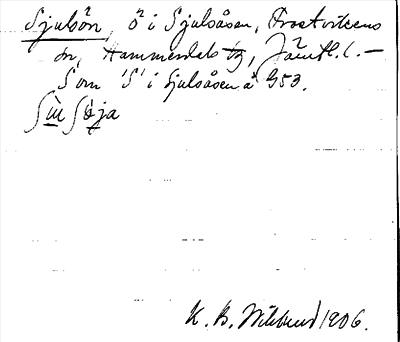 Sjulsön, ö i Sjulsåsen, Frostvikens
sn, Hammerdals tg, Jämtl. l. —
Som 'S' i Sjulsåsen å 953.
K. B. Wiklund 1906.